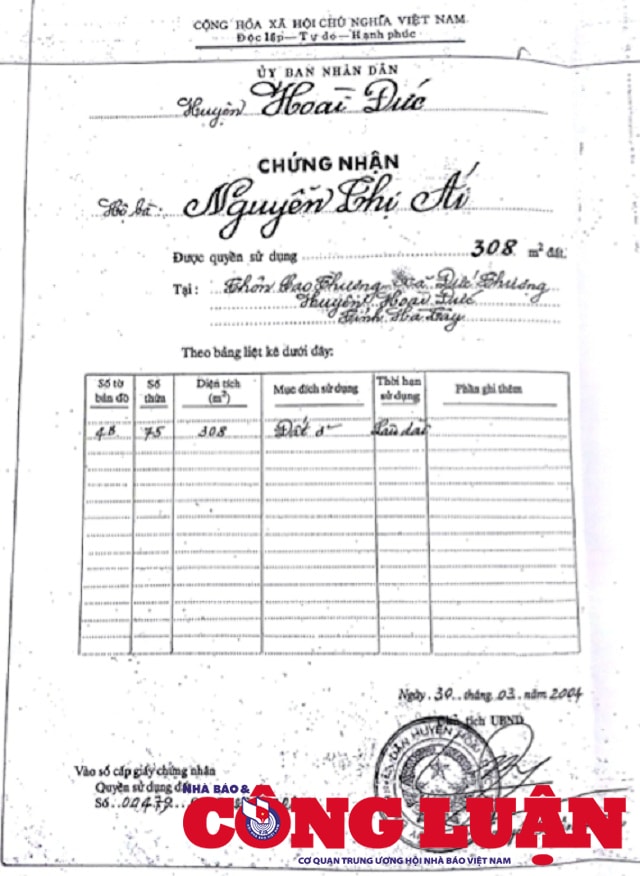 CỘNG HÒA XÃ HỘI CHỦ NGHĨA VIỆT NAM
Độc lập—Tự do—Hạnh phúc
ỦY BAN NHÂN DÂN
Huyện Hoài Đức
CHỨNG NHẬN
Hộ bà: Nguyễn Thị Ái
Được quyền sử dụng 308 m² đất.
Tại: Thôn Cao Thượng Xã Đức Thượng
Huyện Hoài Đức
Tỉnh Hà Tây
Theo bảng liệt kê dưới đây:
Số tờ bản đồ Số thửa Diện tích (m²) Mục đích sử dụng Thời hạn sử dụng Phần ghi thêm
48 75 308 Đất ở Lâu dài
Ngày 30 tháng 03 năm 2004
Chủ tịch UBND
Vào sổ cấp giấy chứng nhận
Quyền sử dụng
Số 00479
NHÀ BÁO &
CÔNG LUẬN
CƠ QUAN TRUNG ƯƠNG HỘI NHÀ BÁO VIỆT NAM